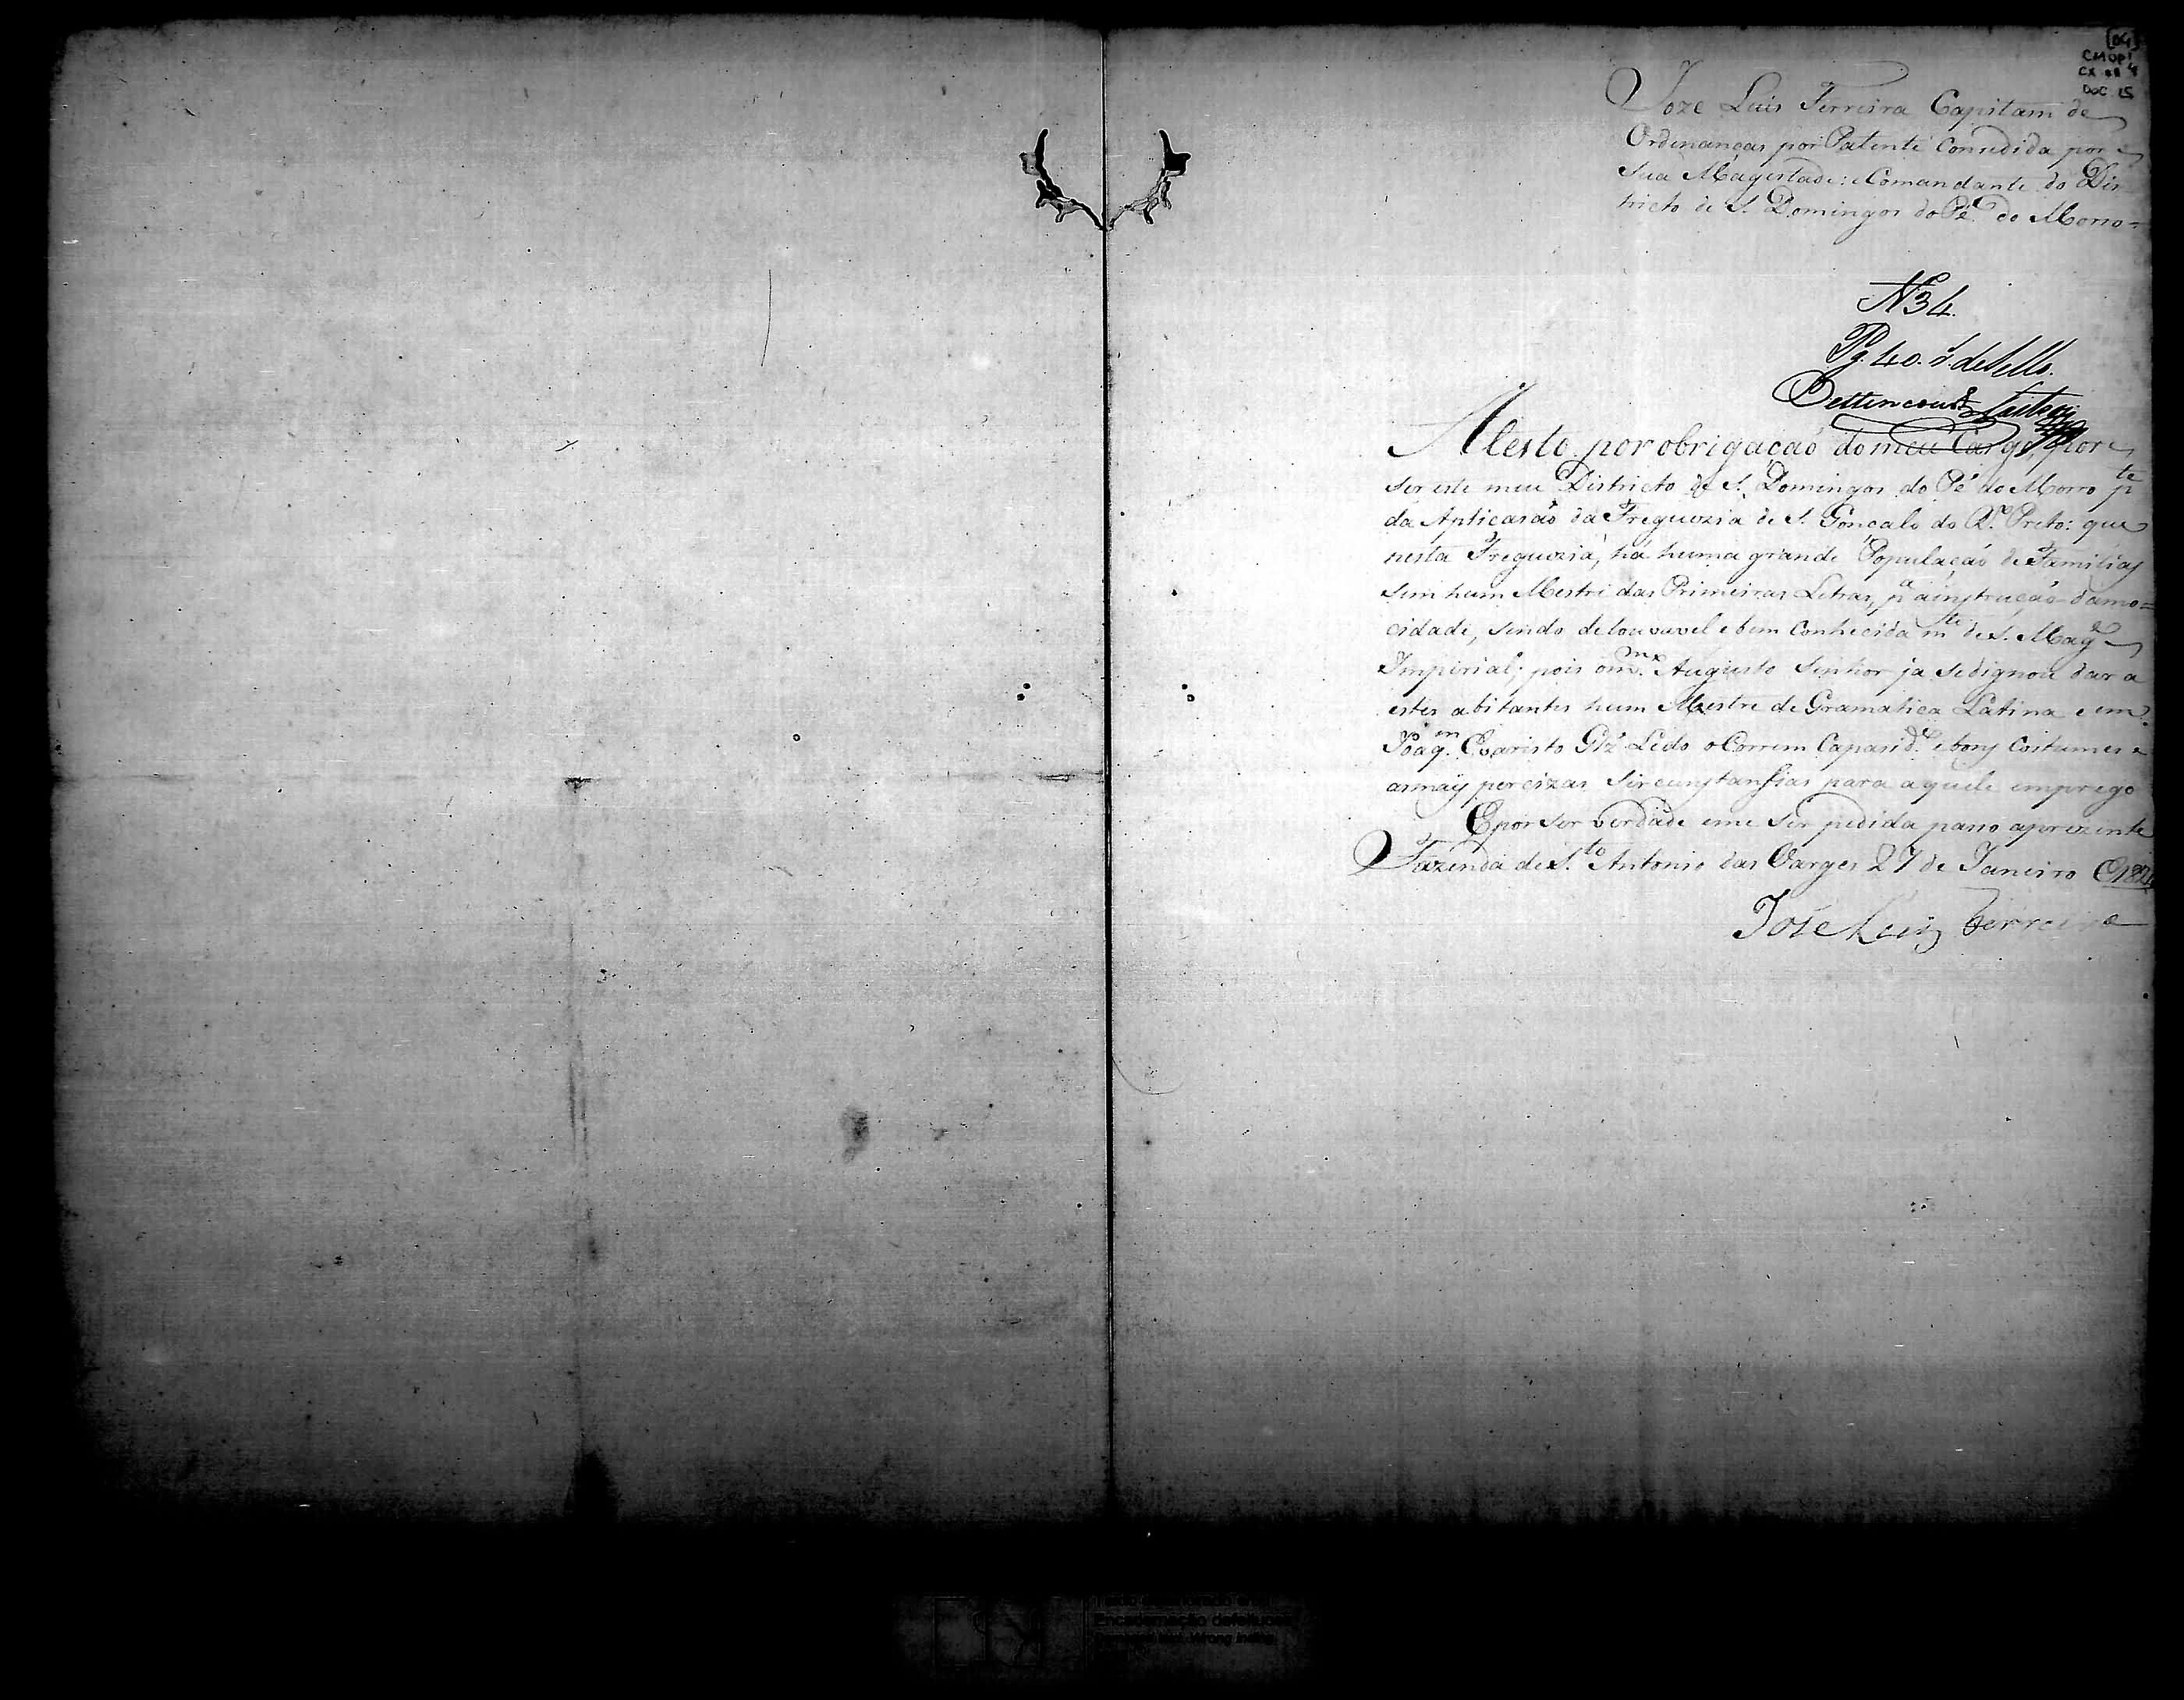 [04]
CMOP
CX 4
DOC. 15
Joze Luis Ferreira Capitam de
Ordenanças por Patente Consedida por
Sua Magestade: e Comandante do Dis
tricto de S. Domingos do Pé do Morro=
N34.
Pg. 40. r. de Sello.
Bettencourt
Atesto por obrigaçaõ do meu Cargo, por
ser este meu Districto de S. Domingos do Pé do Morro p.te
da Aplicasaõ da Freguezia de S. Gonçalo do R.º Preto: que
nesta Freguezia, há huma grande Populaçaõ de Familias
sem hum Mestre das Primeiras Letras, p.a a instruçaõ da mo=
cidade, sendo de louvavel e bem Conhecida m.te de S. Mag.e
Imperial; pois o m.mo Augusto Senhor ja se dignou dar a
estes abitantes hum Mestre de Gramatica Latina e em
Joaq.m Evaristo Glz Ledo o Correm Capasid.e e bons Costumes e
as mais percizas Sircunstansias para aquele emprego
E por ser verdade e me ser pedida paso a prezente
Fazenda de S.to Antonio das Varges 27 de Janeiro
José Luiz Ferreira